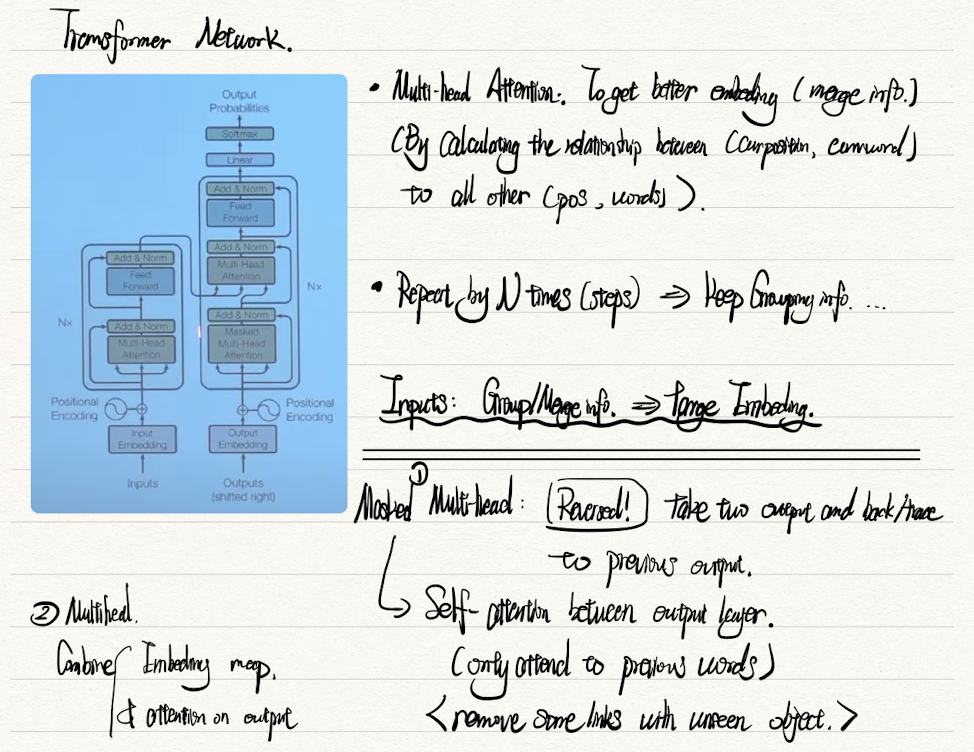 Transformer Network.
Output
Probabilities
Softmax
Linear
Add & Norm
Feed
Forward
Add & Norm
Multi-Head
Attention
Nx
Add & Norm
Masked
Multi-Head
Attention
Add & Norm
Feed
Forward
Nx
Add & Norm
Multi-Head
Attention
Positional
Encoding
Positional
Encoding
Input
Embedding
Output
Embedding
Inputs
Outputs
(shifted right)
• Multi-head Attention: To get better embeding (merge info.)
(By calculating the relationship between (curposition, curword)
to all other (pos, words)).
• Repeat by N times (steps) ⇒ keep Grouping info. ...
Inputs: Group/Merge info. ⇒ Embeding.
① Masked Multi-head: Reversed! Take two output and back/trace
to previous output.
Self-attention between output layer.
(only attend to previous words)
<remove some links with unseen object.>
② Multihead.
Combine Embeding map.
& attention on output